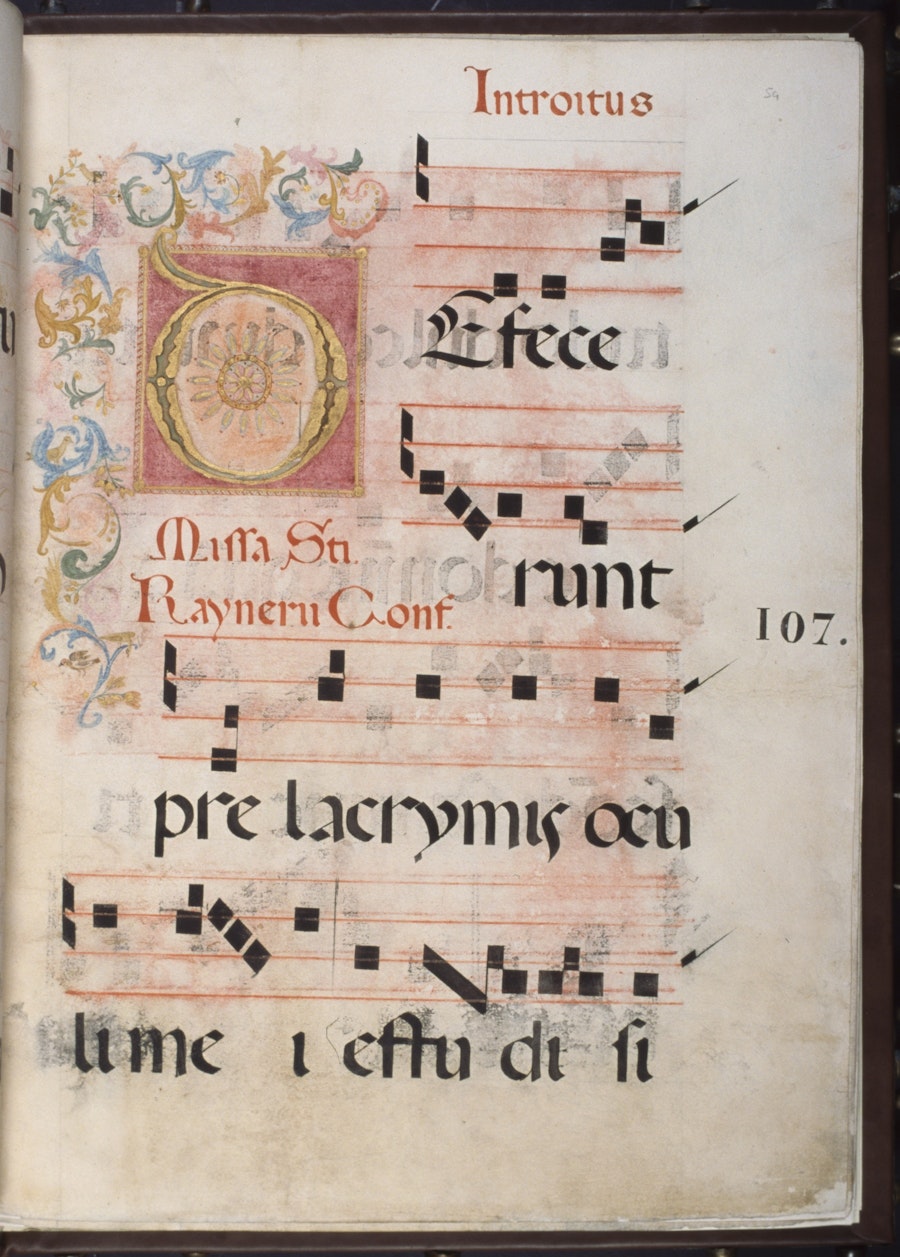 Introitus
54
DEfece
Missa Sti.
Raynerii Conf.
runt
107.
pre lacrymis ocu
li me i effu di si